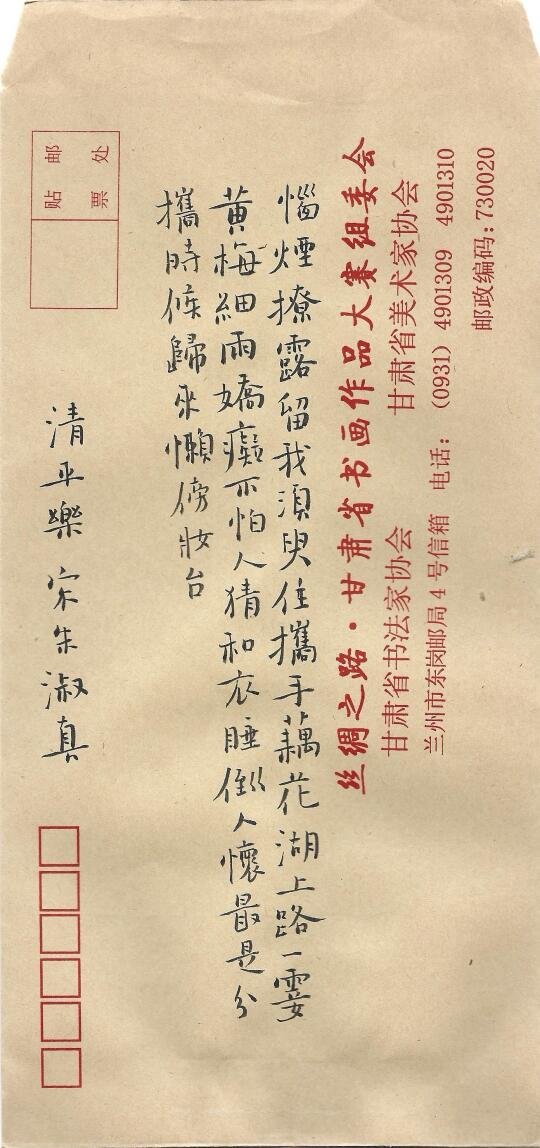 惱煙撩露留我須臾住攜手藕花湖上路一霎
黃梅細雨嬌癡不怕人猜和衣睡倒人懷最是分
攜時候歸來懶傍妝台
清平樂 宋朱淑真
贴邮
票处
丝绸之路·甘肃省书画作品大赛组委会
甘肃省书法家协会 甘肃省美术家协会
兰州市东岗邮局4号信箱 电话：(0931) 4901309 4901310
邮政编码：730020